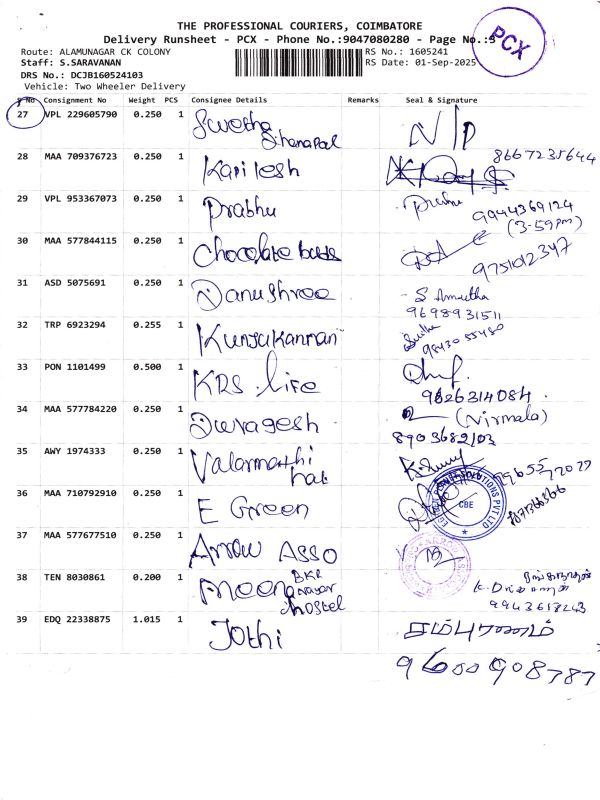 THE PROFESSIONAL COURIERS, COIMBATORE
Delivery Runsheet - PCX - Phone No.:9047080280 - Page No.:3
PCX
Route: ALAMUNAGAR CK COLONY
RS No.: 1605241
Staff: S.SARAVANAN
RS Date: 01-Sep-2025
DRS No.: DCJB160524103
Vehicle: Two Wheeler Delivery
S No Consignment No Weight PCS Consignee Details Remarks Seal & Signature
27 VPL 229605790 0.250 1 Swetha Dhanapal N/P
28 MAA 709376723 0.250 1 8667235644
29 VPL 953367073 0.250 1 Prabhu Prabhu
9944369124
(3-59pm)
30 MAA 577844115 0.250 1 Chocolate
9751012347
31 ASD 5075691 0.250 1 Danushree S Amutha
9698931511
32 TRP 6923294 0.255 1 Kunjukannan
9843055480
33 PON 1101499 0.500 1 KRS life
9626314084
34 MAA 577784220 0.250 1 Duragesh (Nirmala)
8903682103
35 AWY 1974333 0.250 1 Valarmathi
36 MAA 710792910 0.250 1 E Green
CBE
37 MAA 577677510 0.250 1 Arrow Asso
38 TEN 8030861 0.200 1 Meena BKR Nagar hostel
9943618243
39 EDQ 22338875 1.015 1 Jothi
9600908787